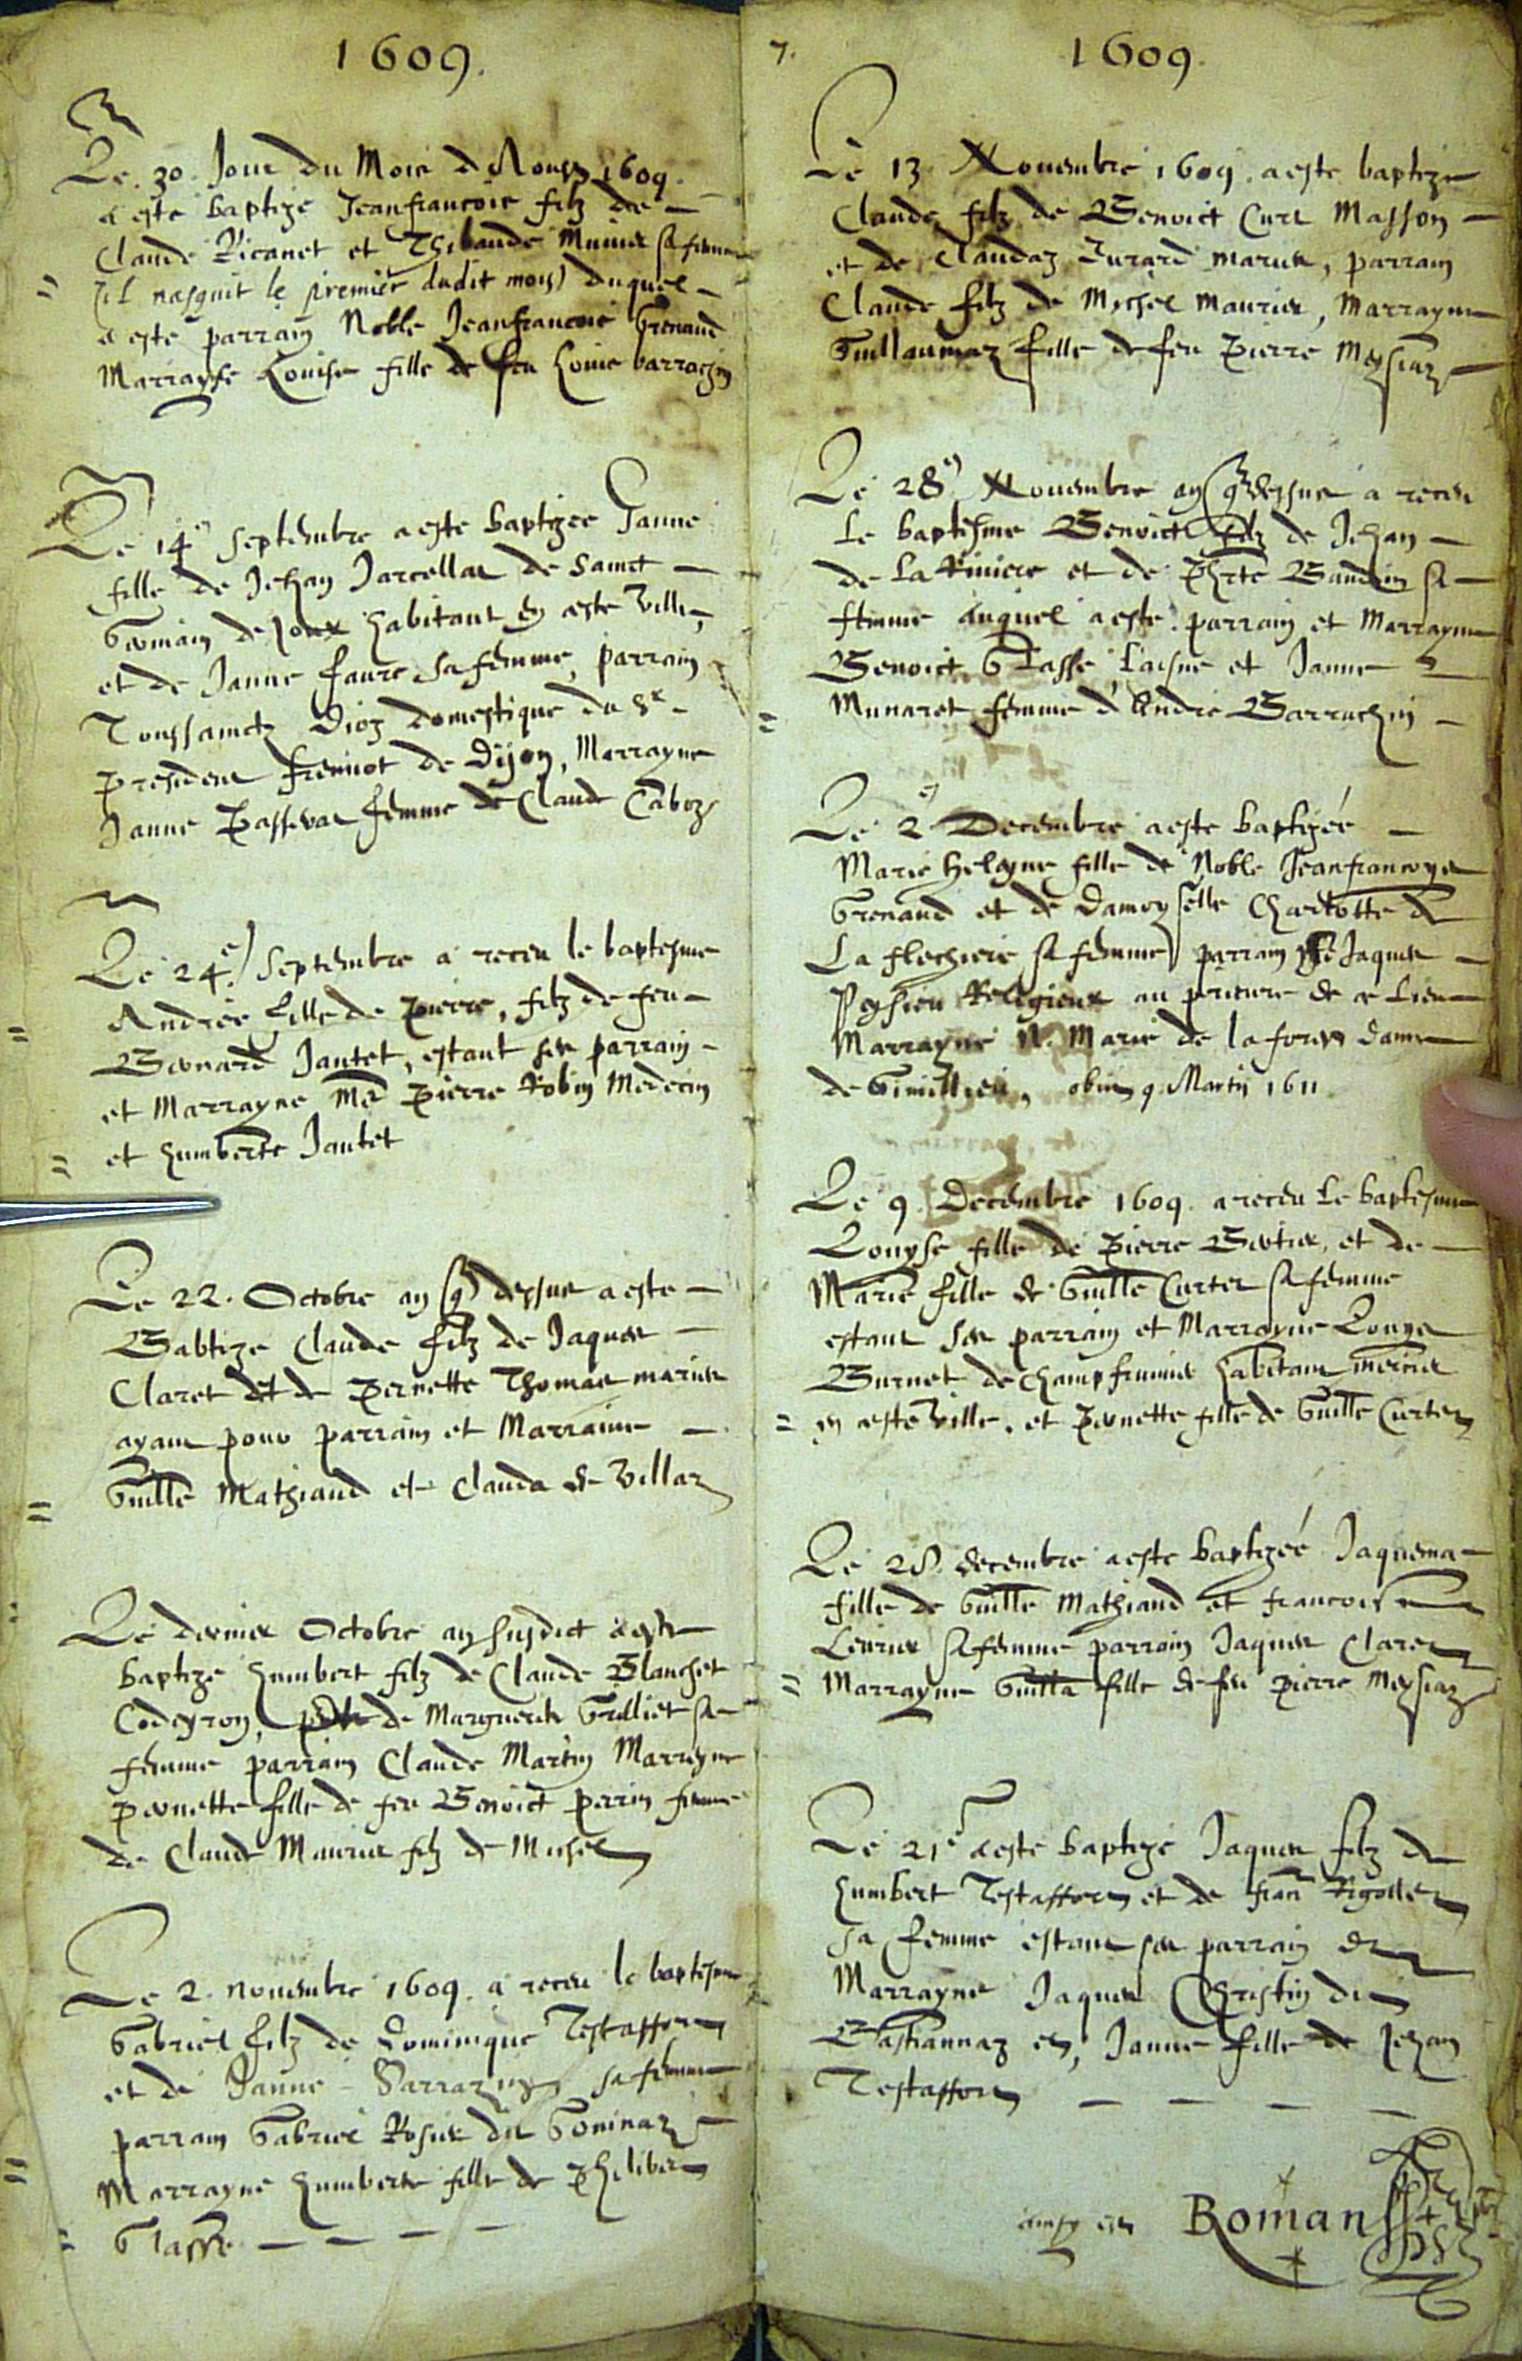 1609.
Le 30. Jour du Mois d Aoust 1609.
a este baptize Jeanfrancois filz de
Claude Ricanet et Thibaude Munier sa femme
(il nasquit le premier dudit mois) duquel
a este parrain Noble Jeanfrancois Grenaud
Marrayne Louise fille de feu Louis barrachin
Le 14e Septembre a este baptizee Janne
fille de Jehan Jarcellat de Sainct
Germain de Joux habitant en ceste ville,
et de Janne Faure sa femme, parrain
Toussainctz Dioz domestique du Sr
president fremiot de Dijon, Marrayne
Janne Passerat femme de Claude Caboz
Le 24.e Septembre a receu le baptesme
Andrée fille de Pierre, filz de feu
Bernard Jantet, estant ses parrain
et Marrayne Mre Pierre Robin Medecin
et humberte Jantet
Le 22. Octobre an q dessus a este
Babtize Claude filz de Jaques
Claret et de Pernette Thomas maries
ayant pour parrain et Marraine
Guille Mathiaud et Clauda de Villaz
Le dernier Octobre an susdict a este
baptize humbert filz de Claude Blanchet
Codeyron, de Marguerite Grilliet sa
femme parrain Claude Martin Marrayne
pernette fille de feu Benoict perrin femme
de Claude Maurier filz de Michel
Le 2. novembre 1609. a receu le baptesme
Gabriel filz de Dominique Testaffort
et de Janne Sarrazin sa femme
parrain Gabriel Rosier dit Goninaz
Marrayne humberte fille de Philibert
Glasse
7.
1609.
Le 13. Novembre 1609. a este baptize
Claude filz de Benoict Curt Masson
et de Claudaz Burard maries, parrain
Claude filz de Michel Maurier, Marrayne
Guillaumaz fille de feu Pierre Meysiaz
Le 28e Novembre an q dessus a receu
le baptesme Benoict filz de Jehan
de la Riviere et de Phrte Baudin sa
femme auquel a este parrain et Marrayne
Benoict Glasse laisne et Janne
Munaret femme d'Andre Barrachin
Le 2e Decembre a este baptizée
Marie helayne fille de Noble Jeanfrancoys
Grenaud et de Damoyselle Charlotte de
La flechiere sa femme parrain Jaques
Peysieu Religieux au prieure de ce lieu
Marrayne N. Marie de la forest dame
de Gimillieu, obiit 9. Martij 1611.
Le 9. Decembre 1609. a receu le baptesme
Louyse fille de Pierre Bertier, et de
Marie fille de Guille Curtet sa femme
estant ses parrain et Marrayne Louys
Burnet de Champfrumier habitant mercier
en ceste ville, et pernette fille de Guille Curtet
Le 28. decembre a este baptizée Jaquema
fille de Guille Mathiaud et francoise
Levrier sa femme parrain Jaques Claret
Marrayne Guilla fille de feu pierre Meysiaz
Le 21e a este baptize Jaques filz de
humbert Testaffort et de fran Rigollet
sa femme estant ses parrain et
Marrayne Jaques Christin dit
Bastiannaz et, Janne fille de Jehan
Testaffort
ainsy est Roman